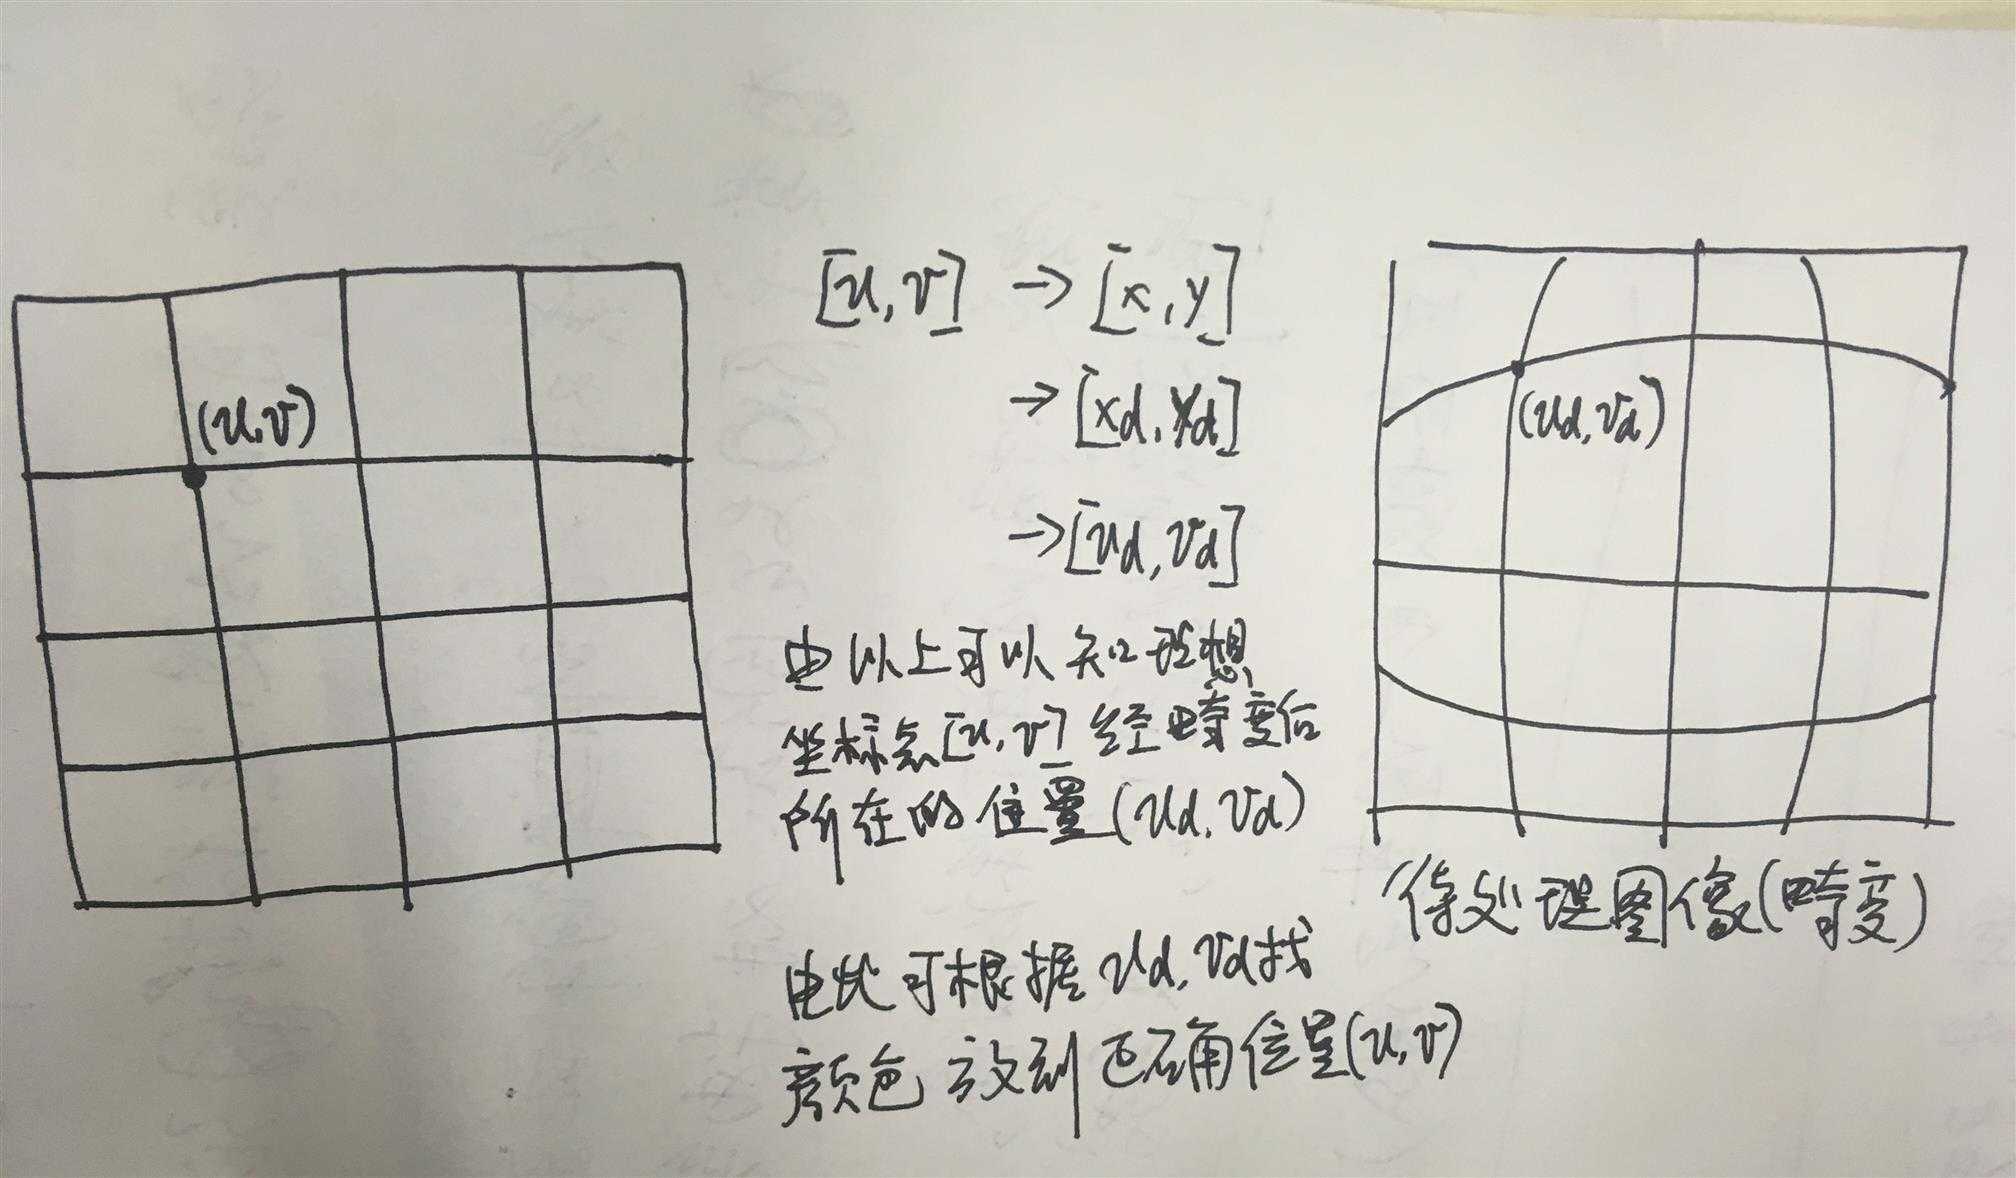 (u,v)
[u,v] → [x,y]
→ [xd,yd]
→ [ud,vd]
由以上可以知理想
坐标点[u,v]经畸变后
所在的位置(ud,vd)
由此可根据ud,vd找
颜色放到正确位置(u,v)
(ud,vd)
待处理图像(畸变)